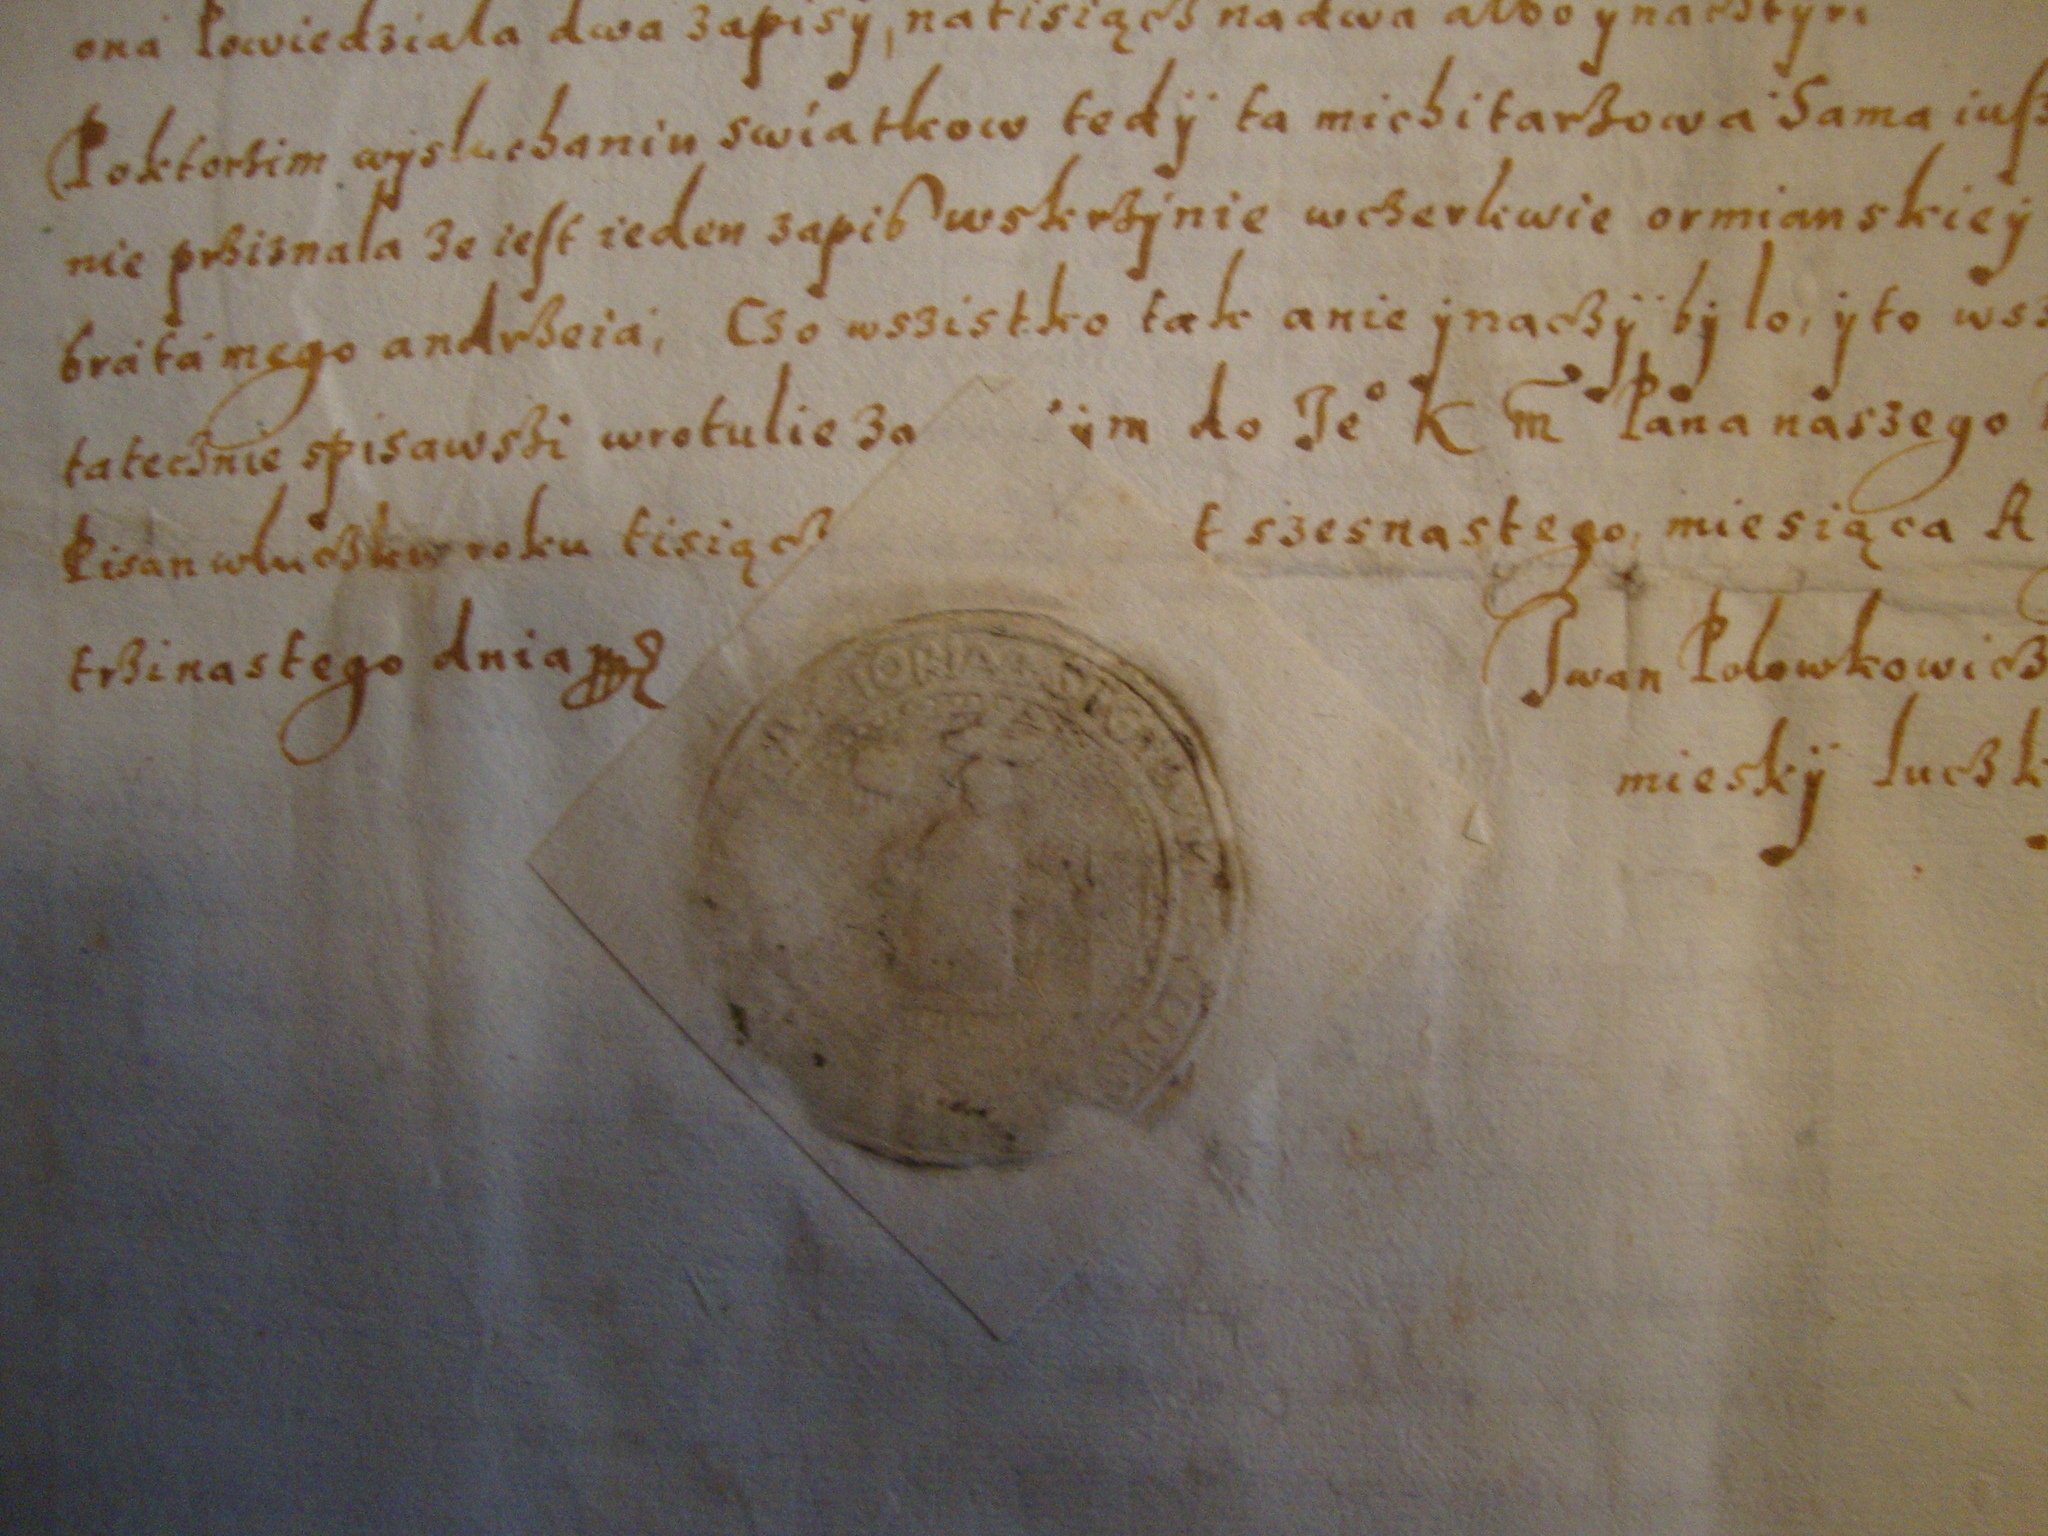 ona Powiedziala dwa zapisÿ, na tisiącz na dwa albo ÿ na cztÿri
Poktorzim wÿsluchaniu swiatkow tedÿ ta michitarzowa Sama iusz
nie prziznala ze iest ieden zapis wskrzÿnie wczerkwie ormianskieÿ
brata mego andrzeia, Czo wszistko tak anie ÿnaczÿ bÿlo, ÿ to wsz
tatecznie spisawszi wrotulie za ÿm do Je° K m Pana naszego
Pisan wluczku roku tisiącz t szesnastego, miesiąca A
trzinastego dnia
Iwan Polowkowicz
mieskÿ luczk